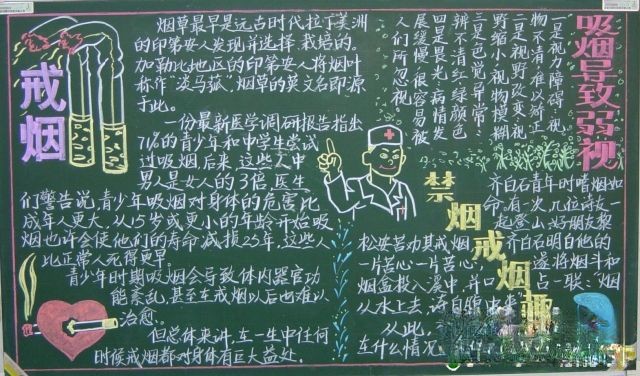 戒烟
烟草最早是远古时代拉丁美洲
的印第安人发现并选择栽培的。
加勒比地区的印第安人将烟叶
称作“淡马菰”,烟草的英文名即源
于此。
一份最新医学调研报告指出
71%的青少年和中学生尝试
过吸烟,后来,这些人中
男人是女人的3倍,医生
们警告说,青少年吸烟对身体的危害比
成年人更大,从15岁或更小的年龄开始吸
烟也许会使他们的寿命减损25年,这些人
比正常人死得更早。
青少年时期吸烟会导致体内器官功
能紊乱,甚至在戒烟以后也难以
治愈。
但总体来讲,在一生中任何
时候戒烟都对身体有巨大益处。
吸烟导致弱视
一是视力障碍,视
物不清难以矫正
二是视野改变,视
野缩小,视物模糊
三是色觉异常:
辨不清红绿颜色
四是畏光,病情发
展缓慢,很容易被
人们所忽视
禁烟戒烟趣
齐白石青年时嗜烟如
命,有一次,几位诗友一
起登山,好朋友黎
松安苦劝其戒烟,齐白石明白他的
一片苦心,一片苦心,遂将烟斗和
烟盒投入溪中,并口占一联:“烟
从水上去,诗自腹中来”
从此,
在什么情况